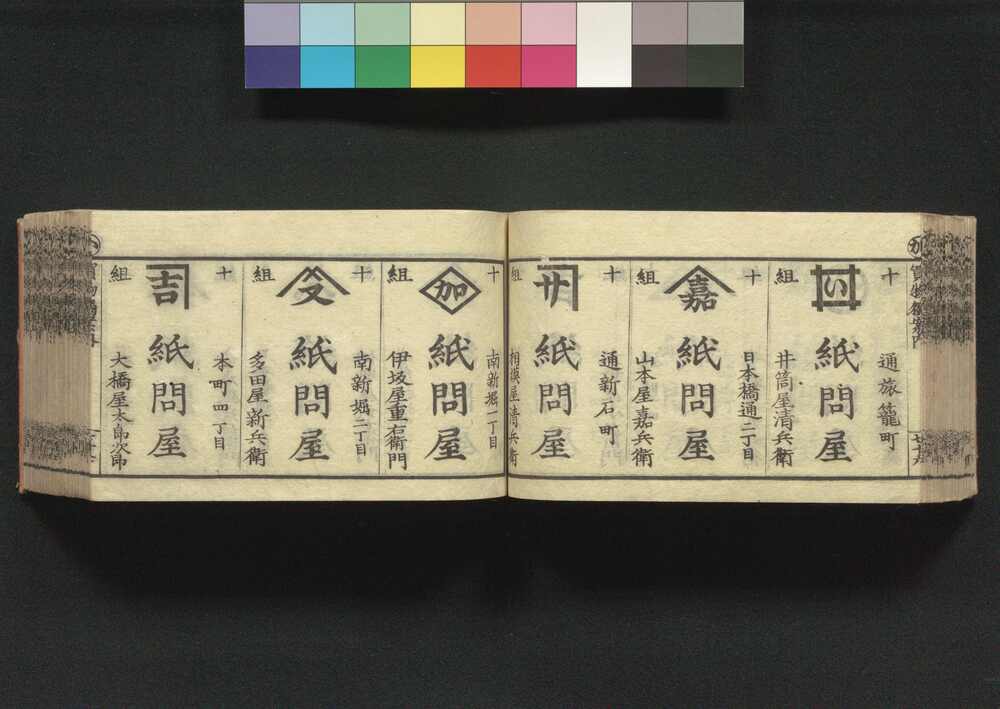 十
通旅籠町
い
紙問屋
組
井筒屋清兵衛
十
日本橋通二丁目
嘉
紙問屋
組
山本屋嘉兵衛
十
通新石町
廾
紙問屋
組
相模屋清兵衛
十
南新堀一丁目
加
紙問屋
組
伊坂屋重右衛門
十
南新堀二丁目
又
紙問屋
組
多田屋新兵衛
十
本町四丁目
吉
紙問屋
組
大橋屋太郎次郎